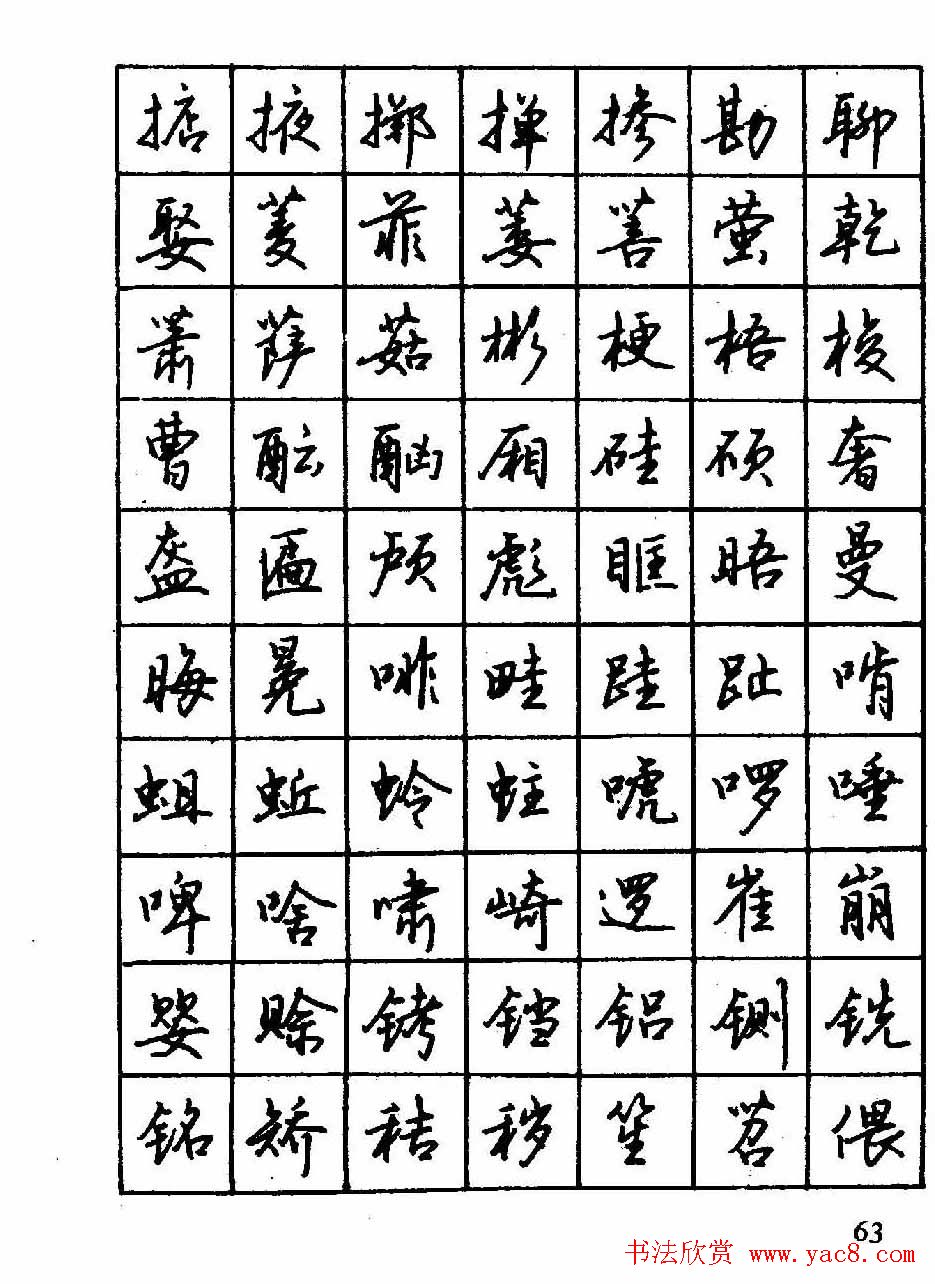 掂 掖 掷 掸 掺 勘 聊
娶 菱 菲 萎 菩 萤 乾
萧 萨 菇 彬 梗 梧 梭
曹 酝 酗 厢 硅 硕 奢
盔 匾 颅 彪 眶 晤 曼
晦 冕 啡 畦 跬 趾 啃
蛆 蚯 蛉 蛀 唬 啰 唾
啤 啥 啸 崎 逻 崔 崩
婴 赊 铐 铛 铝 铡 铣
铭 矫 秸 秽 笙 笤 偎
63
书法欣赏 www.yac8.com